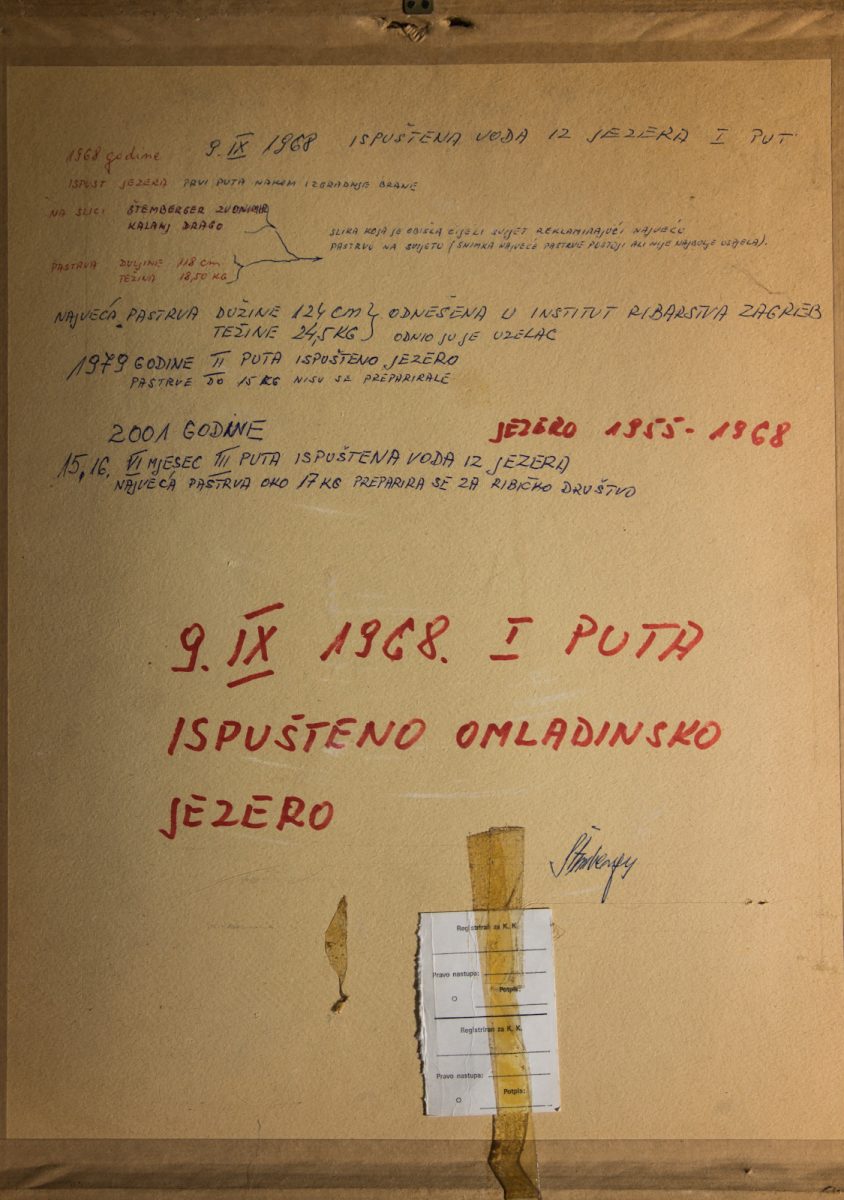 9. IX 1968 ISPUŠTENA VODA IZ JEZERA I PUT
1968 godine
ISPUST JEZERA PRVI PUTA NAKON IZGRADNJE BRANE
NA SLICI ŠTEMBERGER ZVONIMIR
KALANJ DRAGO
SLIKA KOJA JE OBIŠLA CIJELI SVIJET REKLAMIRAJUĆI NAJVEĆU
PASTRVU NA SVIJETU (SNIMKA NAJVEĆE PASTRVE POSTOJI ALI NIJE NAJBOLJE USPJELA).
PASTRVA DULJINE 118 cm
TEŽINA 18,50 KG
NAJVEĆA PASTRVA DUŽINE 124 cm } ODNEŠENA U INSTITUT RIBARSTVA ZAGREB
TEŽINE 24,5 KG } ODNIO JU JE UZELAC
1979 GODINE II PUTA ISPUŠTENO JEZERO
PASTRVE DO 15 KG NISU SE PREPARIRALE
2001 GODINE
JEZERO 1955-1968
15,16. VI MJESEC III PUTA ISPUŠTENA VODA IZ JEZERA
NAJVEĆA PASTRVA OKO 17 KG PREPARIRA SE ZA RIBIČKO DRUŠTVO
9. IX 1968. I PUTA
ISPUŠTENO OMLADINSKO
JEZERO
Registriran za K. K.
Pravo nastupa:
Potpis:
Registriran za K. K.
Pravo nastupa:
Potpis: